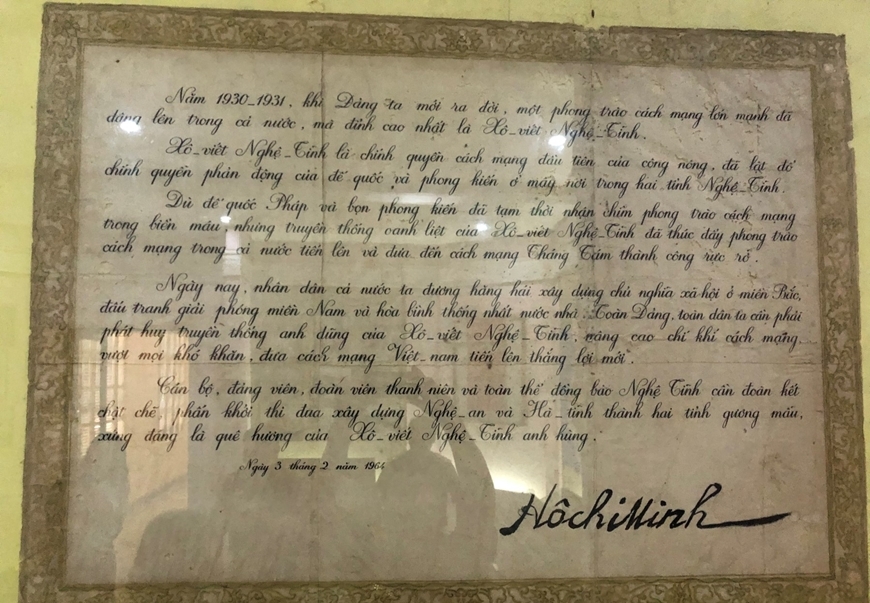 Năm 1930-1931, khi Đảng ta mới ra đời, một phong trào cách mạng lớn mạnh đã
dâng lên trong cả nước, mà đỉnh cao nhất là Xô-viết Nghệ-Tĩnh.
Xô-viết Nghệ-Tĩnh là chính quyền cách mạng đầu tiên của công nông, đã lật đổ
chính quyền phản động của đế quốc và phong kiến ở mấy nơi trong hai tỉnh Nghệ-Tĩnh.
Dù đế quốc Pháp và bọn phong kiến đã tạm thời nhận chìm phong trào cách mạng
trong biển máu, nhưng truyền thống oanh liệt của Xô-viết Nghệ-Tĩnh đã thúc đẩy phong trào
cách mạng trong cả nước tiến lên và đưa đến cách mạng Tháng Tám thành công rực rỡ.
Ngày nay, nhân dân cả nước ta đương hăng hái xây dựng chủ nghĩa xã hội ở miền Bắc,
đấu tranh giải phóng miền Nam và hòa bình thống nhất nước nhà. Toàn Đảng, toàn dân ta cần phải
phát huy truyền thống anh dũng của Xô-viết Nghệ-Tĩnh, nâng cao chí khí cách mạng,
vượt mọi khó khăn, đưa cách mạng Việt-nam tiến lên thắng lợi mới.
Cán bộ, đảng viên, đoàn viên thanh niên và toàn thể đồng bào Nghệ Tĩnh cần đoàn kết
chặt chẽ, phấn khởi thi đua xây dựng Nghệ-an và Hà-tĩnh thành hai tỉnh gương mẫu,
xứng đáng là quê hương của Xô-viết Nghệ-Tĩnh anh hùng.
Ngày 3 tháng 2 năm 1964
Hồ Chí Minh